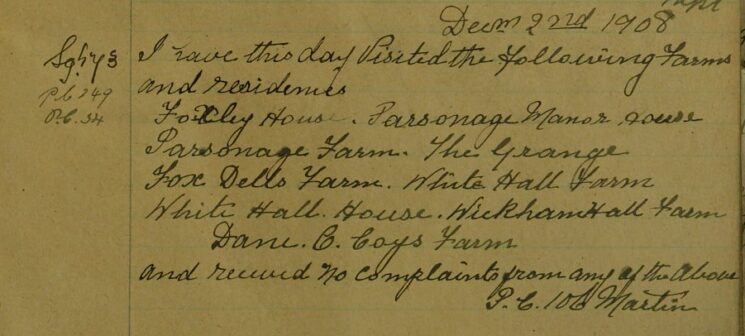 Decm 2nd 1908
Sgt 43
P.C 249
P.C. 34
I have this day Visited the following Farms
and residencies
Foxley House. Parsonage Manor House
Parsonage Farm. The Grange
Fox Dells Farm. White Hall Farm
White Hall. House. Wickham Hall Farm
Dane. C. Coys Farm
and received no complaints from any of the Above
P.C. 106 Martin